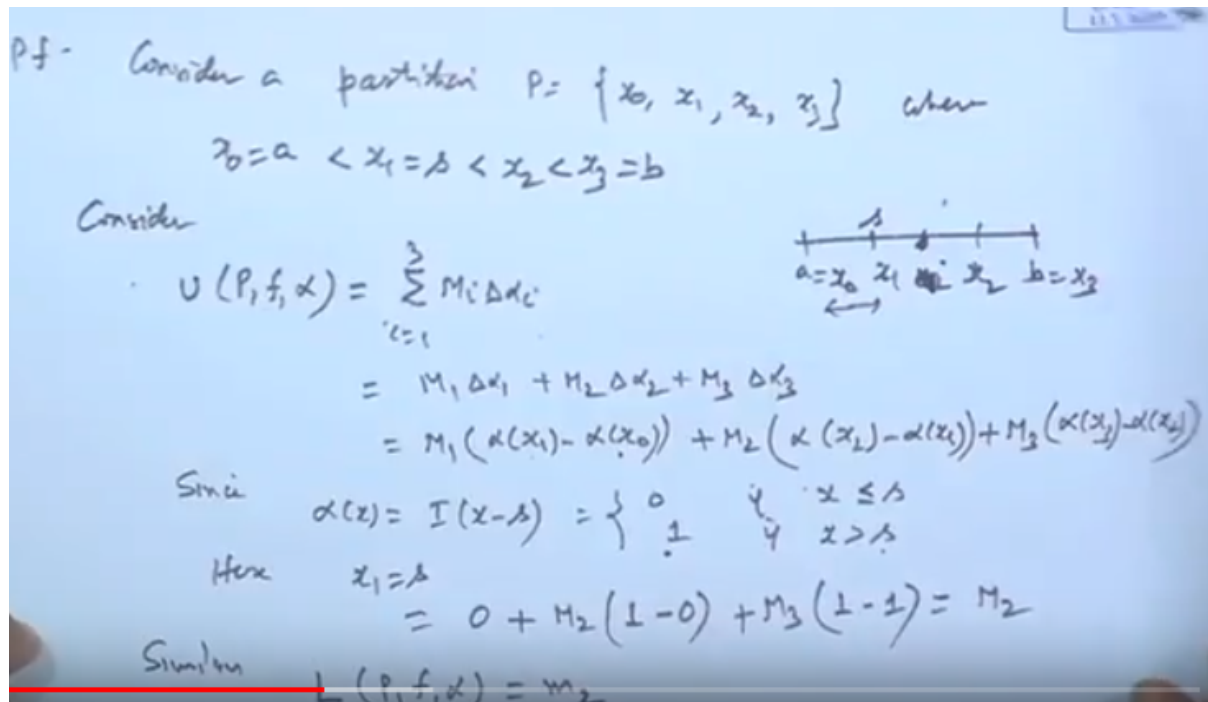 Pf. Consider a partition P = {x₀, x₁, x₂, x₃} where
x₀ = a < x₁ = s < x₂ < x₃ = b
Consider
s
U(P, f, α) = Σ³ᵢ₌₁ Mᵢ Δαᵢ
a = x₀ x₁ x₂ b = x₃
= M₁ Δα₁ + M₂ Δα₂ + M₃ Δα₃
= M₁(α(x₁) - α(x₀)) + M₂(α(x₂) - α(x₁)) + M₃(α(x₃) - α(x₂))
Since
α(x) = I(x-s) = { 0 if x ≤ s
1 if x > s
Here x₁ = s
= 0 + M₂(1 - 0) + M₃(1 - 1) = M₂
L(P, f, α) = m₂